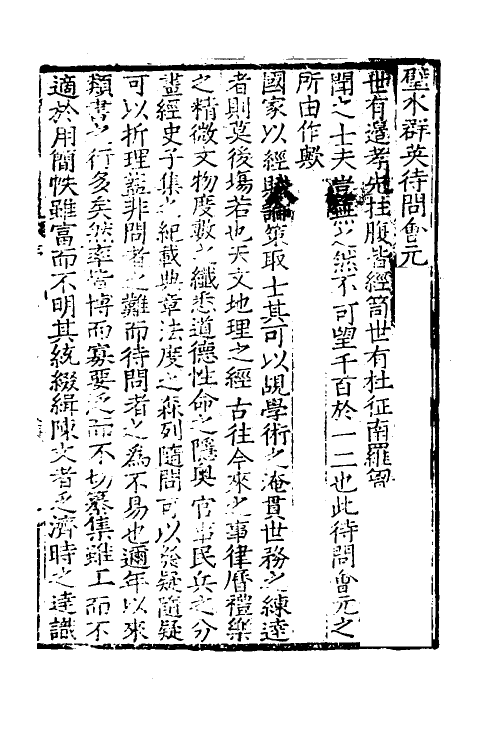 璧水群英待問會元
世有邊孝先拄腹皆經笥世有杜征南羅胷
閒之士夫豈無之然不可望千百於一二也此待問會元之
所由作歟
國家以經賦論策取士其可以覘學術之淹貫世務之練逹
者則莫後場若也天文地理之經古往今來之事律曆禮樂
之精微文物度數之纖悉道德性命之隱奥官事民兵之分
蠧經史子集之紀載典章法度之森列隨問可以發疑隨疑
可以折理蓋非問者之難而待問者之為不易也邇年以來
類書之行多矣然率皆博而寡要泛而不切纂集雖工而不
適於用簡帙雖富而不明其統綴緝陳文者乏濟時之逹識